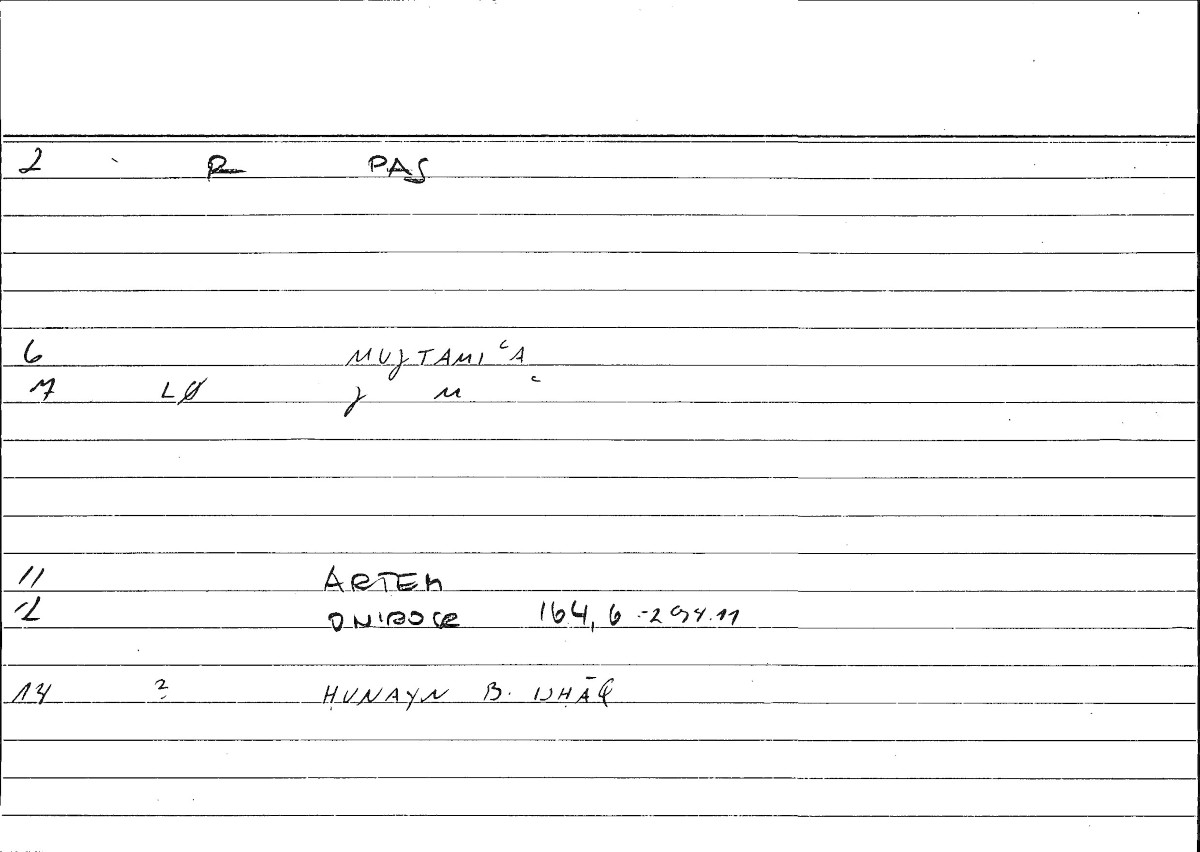 2 R PAS
6 MUJTAMIʿA
7 LØ J M ʿ
11 ARTEM
12 ONIROCR 164, 6 - 294.11
14 ? ḤUNAYN B. ISḤĀQ